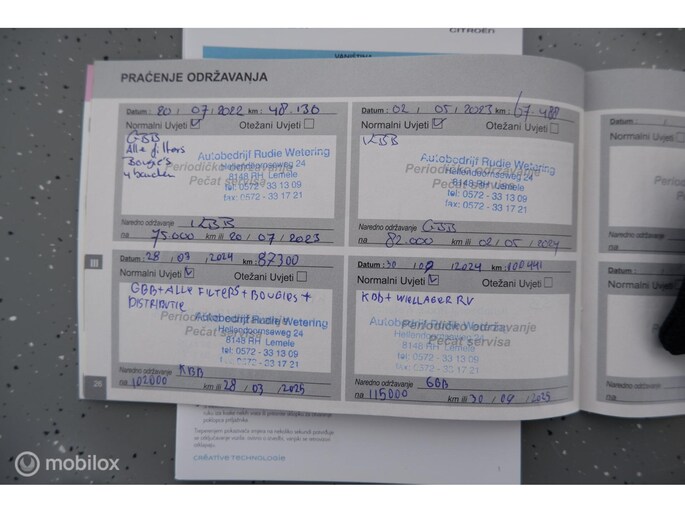 CITROËN
VANJŠTINA
PRAĆENJE ODRŽAVANJA
Datum : 20 / 07 / 2022 km : 48.130
Normalni Uvjeti Otežani Uvjeti
GBB
Alle filters
Bougie's
4 banden
Periodičko održavanje
Pečat servisa
Autobedrijf Rudie Wetering
Hellendoornseweg 24
8148 RH Lemele
tel: 0572 - 33 13 09
fax: 0572 - 33 17 21
Naredno održavanje KBB
na 75.000 km ili 20 / 07 / 2023
Datum : 02 / 05 / 2023 km : 67.488
Normalni Uvjeti Otežani Uvjeti
KBB
Periodičko održavanje
Pečat servisa
Autobedrijf Rudie Wetering
Hellendoornseweg 24
8148 RH Lemele
tel: 0572 - 33 13 09
fax: 0572 - 33 17 21
Naredno održavanje GBB
na 82.000 km ili 02 / 05 / 2024
III
Datum : 28 / 03 / 2024 km : 87300
Normalni Uvjeti Otežani Uvjeti
GBB + ALLE FILTERS + BOUGIES +
DISTRIBUTIE
Periodičko održavanje
Pečat servisa
Autobedrijf Rudie Wetering
Hellendoornseweg 24
8148 RH Lemele
tel: 0572 - 33 13 09
fax: 0572 - 33 17 21
Naredno održavanje KBB
na 102000 km ili 28 / 03 / 2025
Datum : 30 / 09 / 2024 km : 100441
Normalni Uvjeti Otežani Uvjeti
KBB + WIELLAGER RV
Periodičko održavanje
Pečat servisa
Autobedrijf Rudie Wetering
Hellendoornseweg 24
8148 RH Lemele
tel: 0572 - 33 13 09
fax: 0572 - 33 17 21
Naredno održavanje GBB
na 115000 km ili 30 / 09 / 2025
26
Datum :
Normalni U
Peri
Naredno održa
na
Datum :
Normalni Uv
Naredno održav
na
CRÉATIVE TECHNOLOGIE
mobilox